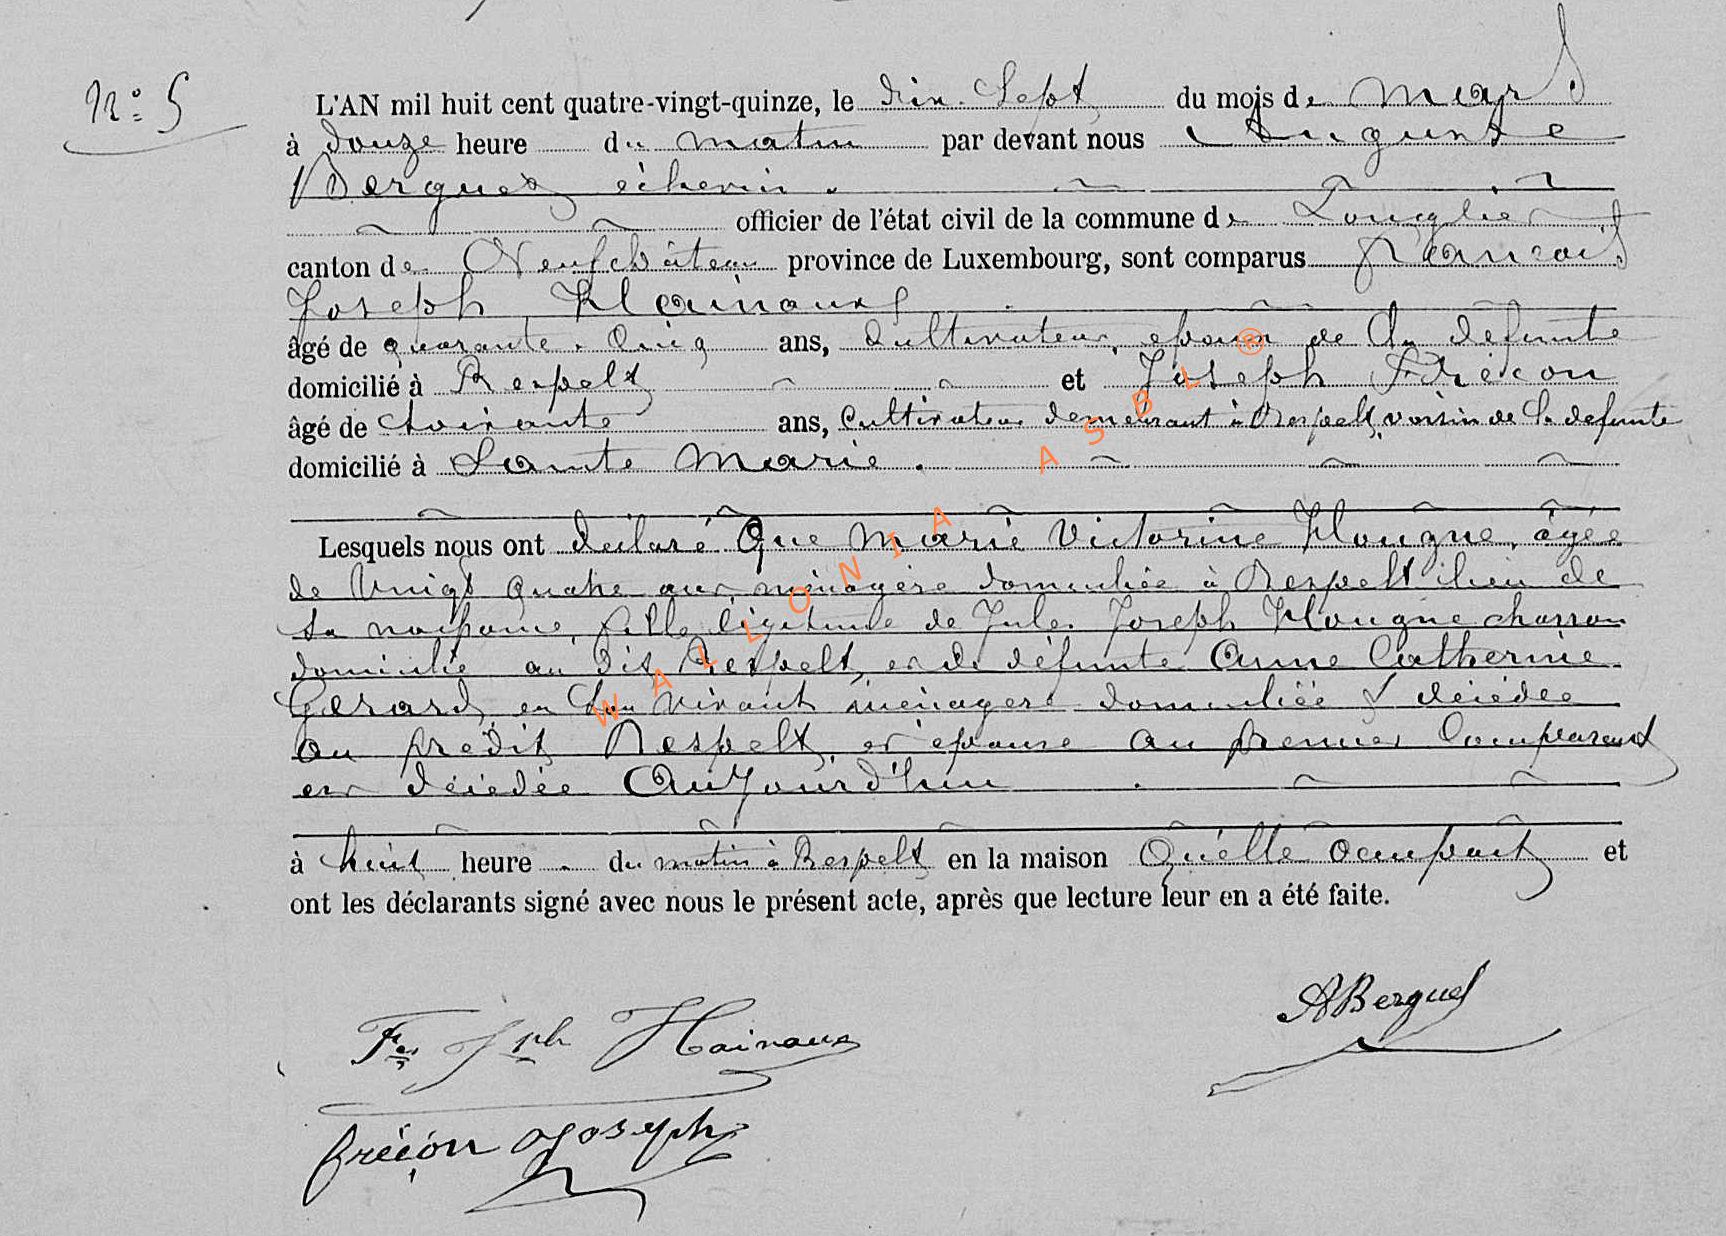 N° 5
L'AN mil huit cent quatre-vingt-quinze, le dix-sept du mois de mars
à douze heure du matin par devant nous Auguste
Berguet échevin.
officier de l'état civil de la commune de Longlier
canton de Neufchâteau province de Luxembourg, sont comparus François
Joseph Hainaux
âgé de quarante-cinq ans, Cultivateur, époux de la défunte
domicilié à Respelt et Joseph Frécon
âgé de soixante ans, Cultivateur demeurant à Respelt, voisin de la defunte
domicilié à Sainte Marie.
Lesquels nous ont déclaré Que Marie Victorine Hougne, âgée
de vingt quatre ans, ménagère domiciliée à Respelt lieu de
sa naissance, fille légitime de Jules Joseph Hougne charron
domicilié au dit Respelt, et de défunte Anne Catherine
Gerard, en son vivant ménagère domiciliée & décédée
au prédit Respelt, et épouse au premier Comparant
est décédée Aujourd'hui
à huit heure du matin à Respelt en la maison Qu'elle occupait et
ont les déclarants signé avec nous le présent acte, après que lecture leur en a été faite.
ABerguet
Fçs Jph Hainaux
frécon Joseph
WALLONIA ASBL ®